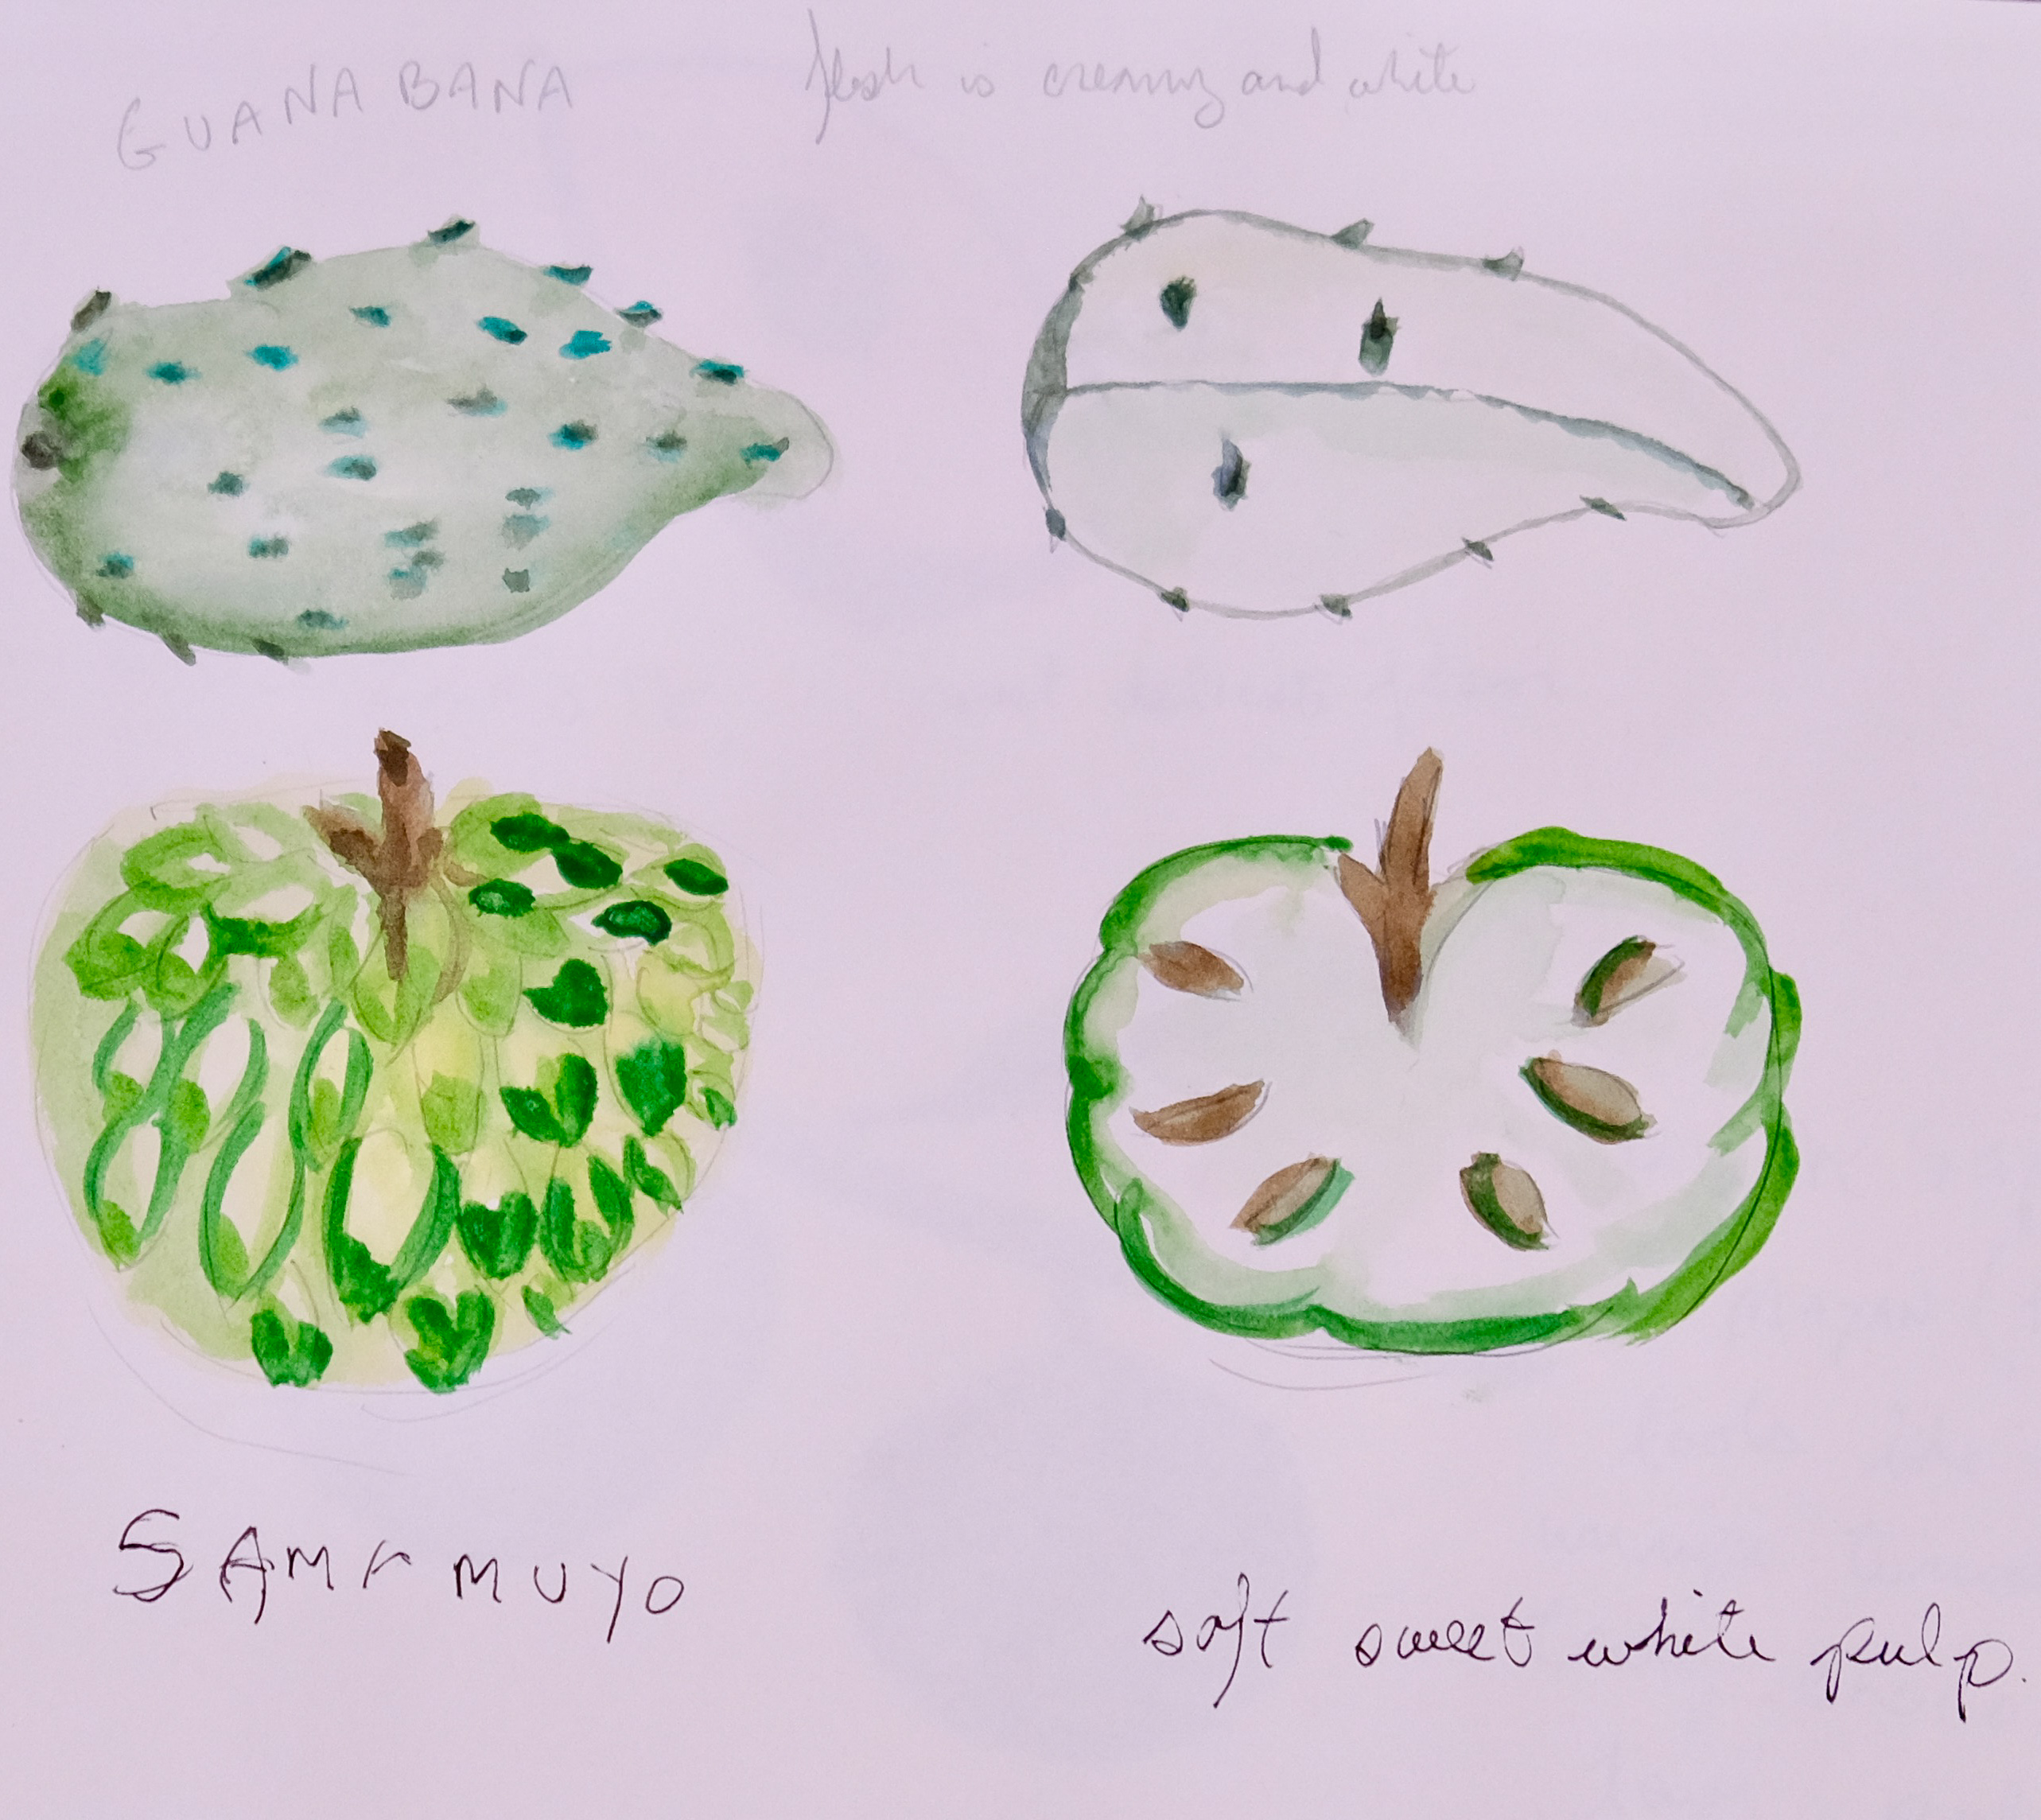 GUANABANA
flesh is creamy and white
SAMRMUYO
soft sweet white pulp.